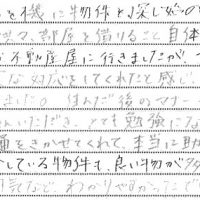 を機に物件を探し始め
部屋を借りること自体
不動産屋に行きましたが
な対応をしてくれたと感じ
ました。住んだ後のマナー
いただき とても勉強にな
をきかせてくれて、本当に助
している物件も良い物が多
など、わかりやすかったで